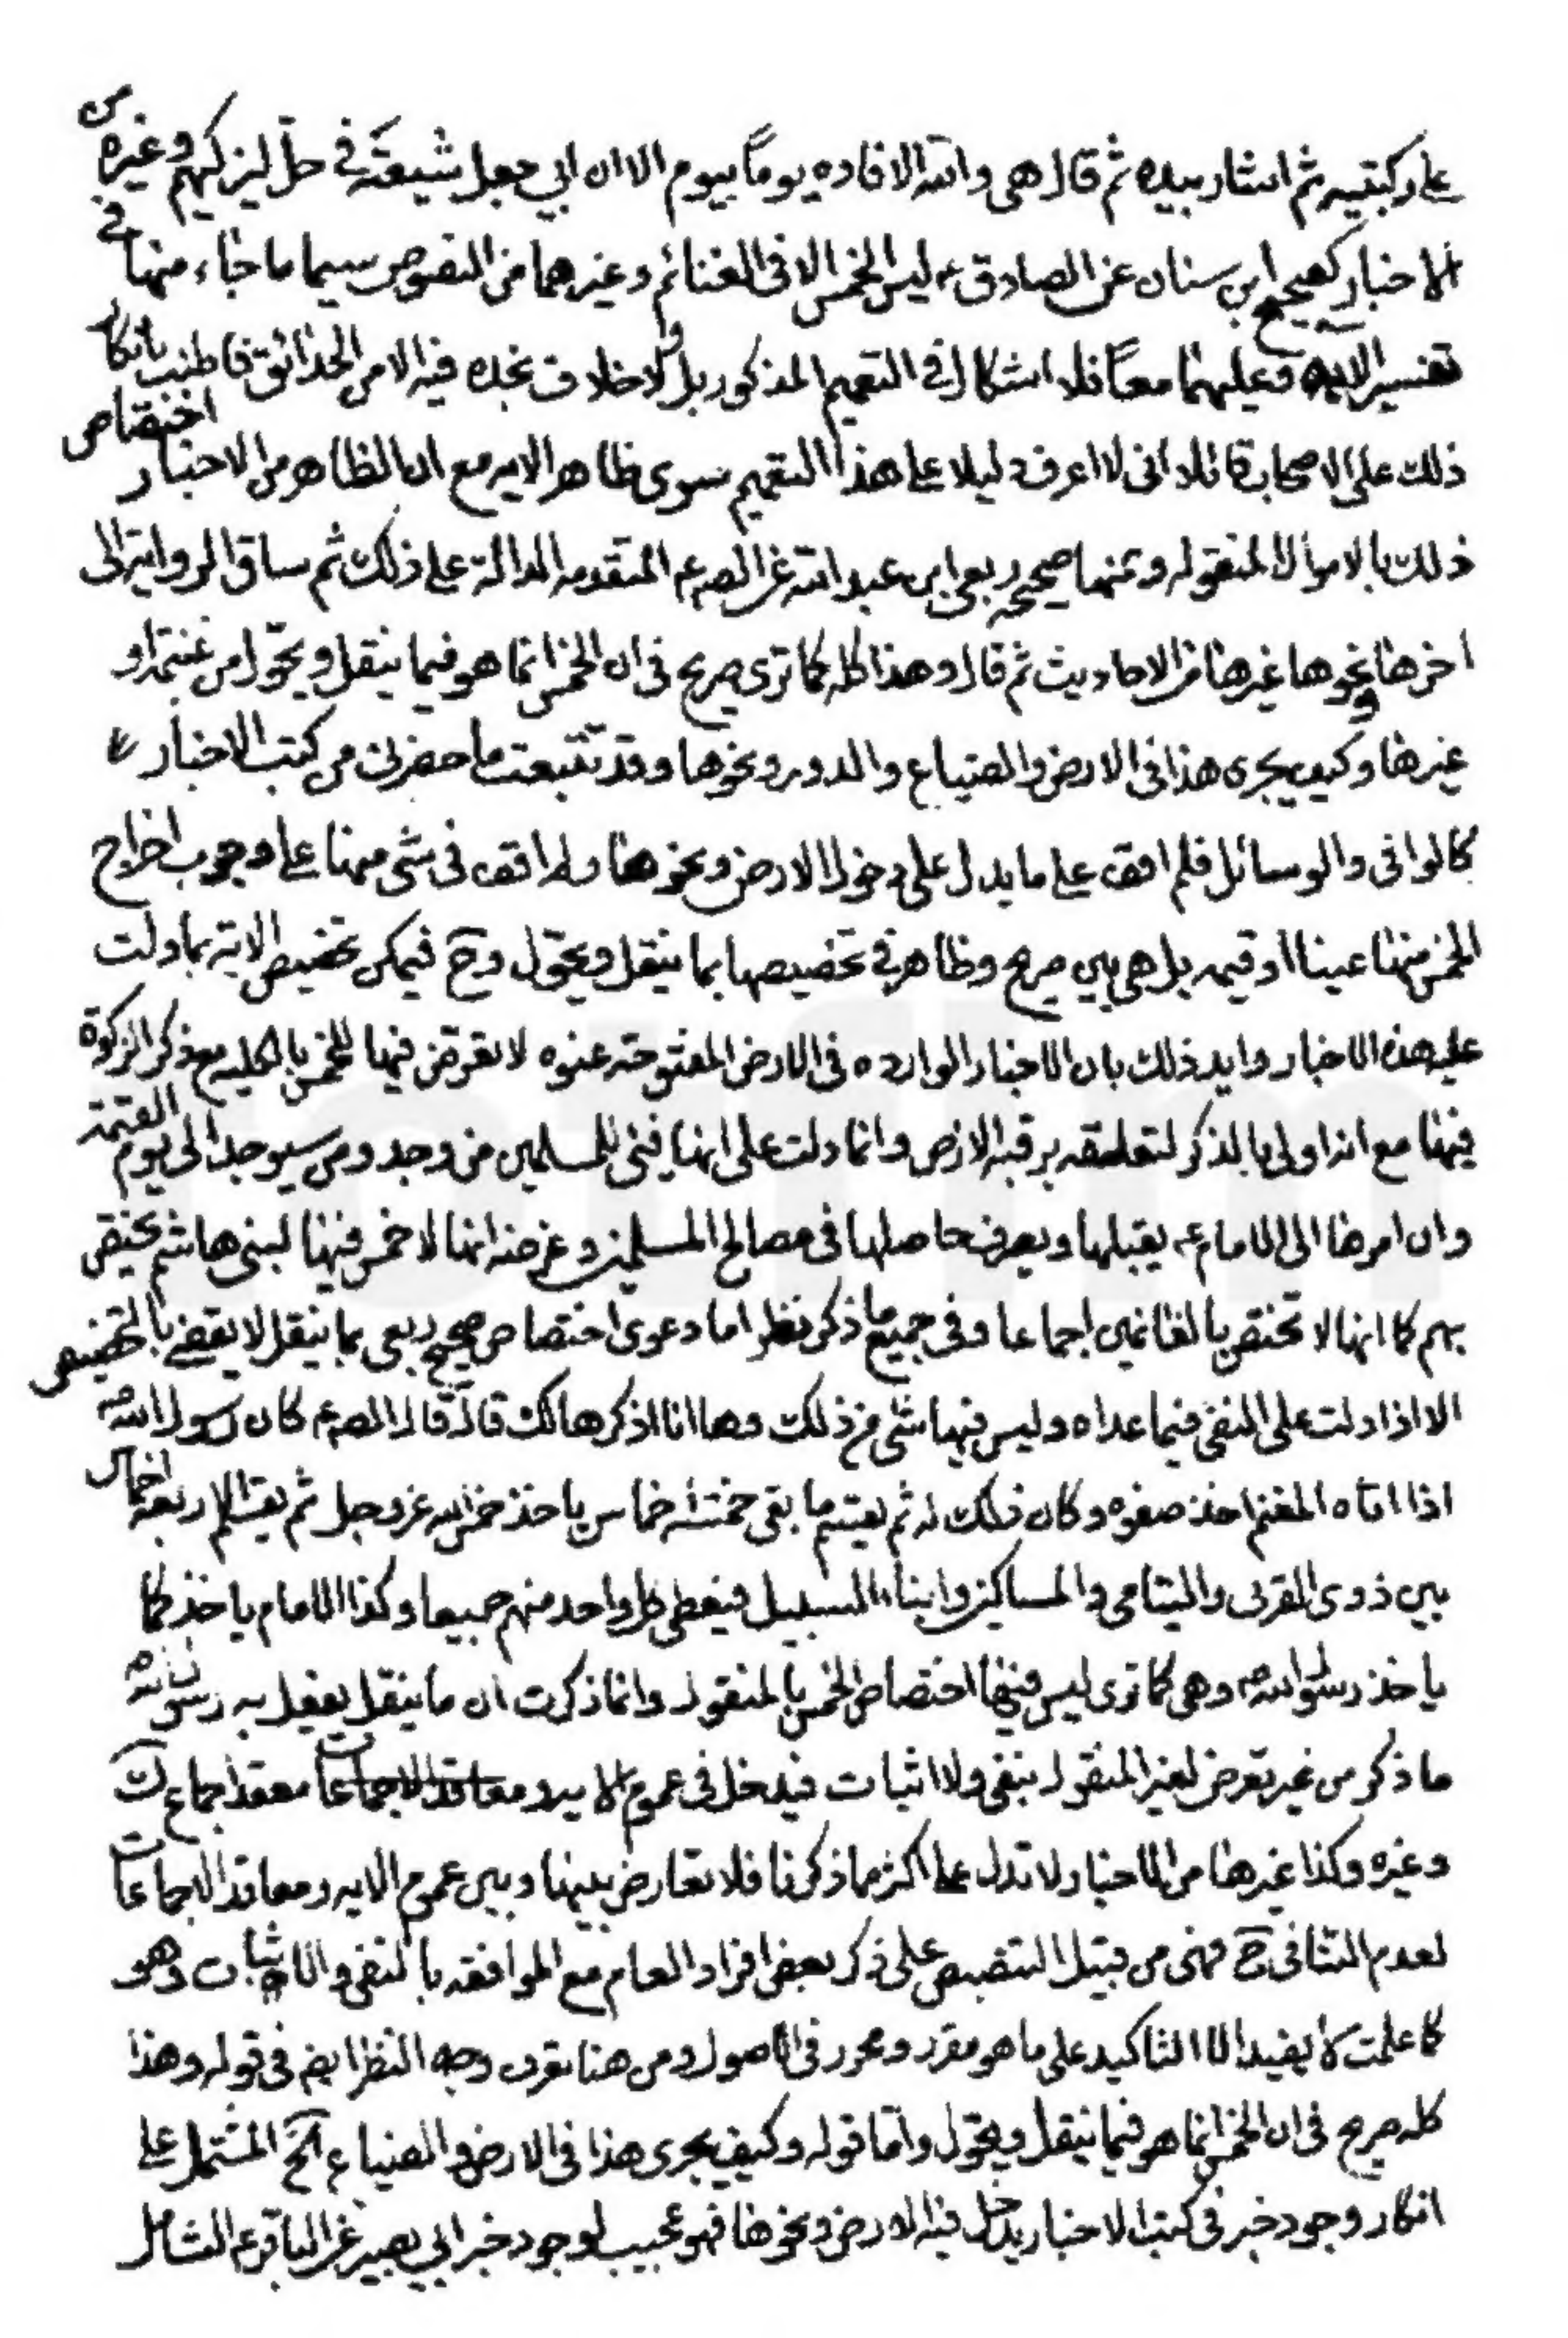 على ركبتيه ثم اشار بيده ثم قال هى والله الافاده يوماً بيوم الا ان ابي جعل شيعته في حلّ ليزكيهم وغيره من
الاخبار كصحيح ابن سنان عن الصادق ع ليس الخمس الا فى الغنائم وغيرهما من النصوص سيما ما جاء منها في
تفسير الايه وعليهما معاً فلا اشكال في التعميم المذكور بل ولا خلاف نجده فيه الا من الحدائق فاطنب بانكار
ذلك على الاصحاب قائلا انى لا اعرف دليلا على هذا التعميم سوى ظاهر الايه مع ان الظاهر من الاخبار اختصاص
ذلك بالاموال المنقوله ومنها صحيحه ربعى ابن عبد الله عن الصم ع المتقدمه الدالة على ذلك ثم ساق الروايتر الى
اخرها ونحوها غيرها من الاحاديث ثم قال وهذا كله كما ترى صريح فى ان الخمس انما هو فيما ينقل ويحوّل من غنيمة او
غيرها وكيف يجرى هذا فى الارض والضياع والدور ونحوها وقد تتبعت ما حضرنى من كتب الاخبار
كالوافى والوسائل فلم اقف على ما يدل على دخول الارض ونحوها ولم اقف فى شى منها على وجوب اخراج
الخمس منها عينا او قيمه بل هى بين صريح وظاهر في تخصيصها بما ينقل ويحوّل وح فيمكن تخصيص الاية بما دلت
عليه هذه الاخبار وايد ذلك بان الاخبار الوارده فى الارض المفتوحه عنوه لا تعرّض فيها للخمس بالكليه مع ذكر الزكوة
فيها مع انه اولى بالذكر لتعلقه برقبه الارض وانما دلت على انها فيئى للمسلمين من وجد ومن سيوجد الى يوم القيمة
وان امرها الى الامام ع يقبلها ويصرف حاصلها فى مصالح المسلمين وغرضه انها لا خمس فيها لبنى هاشم يختص
بهم كما انها لا تختص بالغانمين اجماعا وفى جميع ما ذكر نظر اما دعوى اختصاص صحيح ربعى بما ينقل لا يقضي بالتخصيص
الا اذا دلت على النفى فيما عداه وليس فيها شى من ذلك وها انا اذكرها لك قال قال الصم ع كان رسول الله ص
اذا اتاه المغنم اخذ صفوه وكان ذلك له ثم يقسم ما بقى خمسة خماس ياخذ خمس الله عز وجل ثم يقسم الاربعه اخماس
بين ذوى القربى واليتامى والمساكين وابناء السبيل فيعطى كل واحد منهم جميعا وكذا الامام ياخذ كما
ياخذ رسول الله ص وهى كما ترى ليس فيها اختصاص الخمس بالمنقول وانما ذكرت ان ما ينقل يفعل به رسول الله ص
ما ذكر من غير تعرض لغير المنقول بنفى ولا اثبات فيدخل فى عموم الايه و معاقد الاجماعات معقد اجماع ك
وغيره وكذا غيرها من الاخبار لا تدل على اكثر مما ذكرنا فلا تعارض بينها وبين عموم الايه ومعاقد الاجماعات
لعدم التنافى ح فهى من قبيل التنصيص على ذكر بعض افراد العام مع الموافقه بالنفى والاثبات وهو
كما علمت لا يفيد الا التاكيد على ما هو مقرر ومحرر فى الاصول ومن هنا تعرف وجه النظر ايض فى قوله وهذا
كله صريح فى ان الخمس انما هو فيما ينقل ويحوّل وامّا قوله وكيف يجرى هذا فى الارض والضياع الخ المشتمل على
انكار وجود خبر فى كتب الاخبار يدخل فيه الارض ونحوها فهو عجيب لوجود خبر ابي بصير عن الباقر ع الشامل